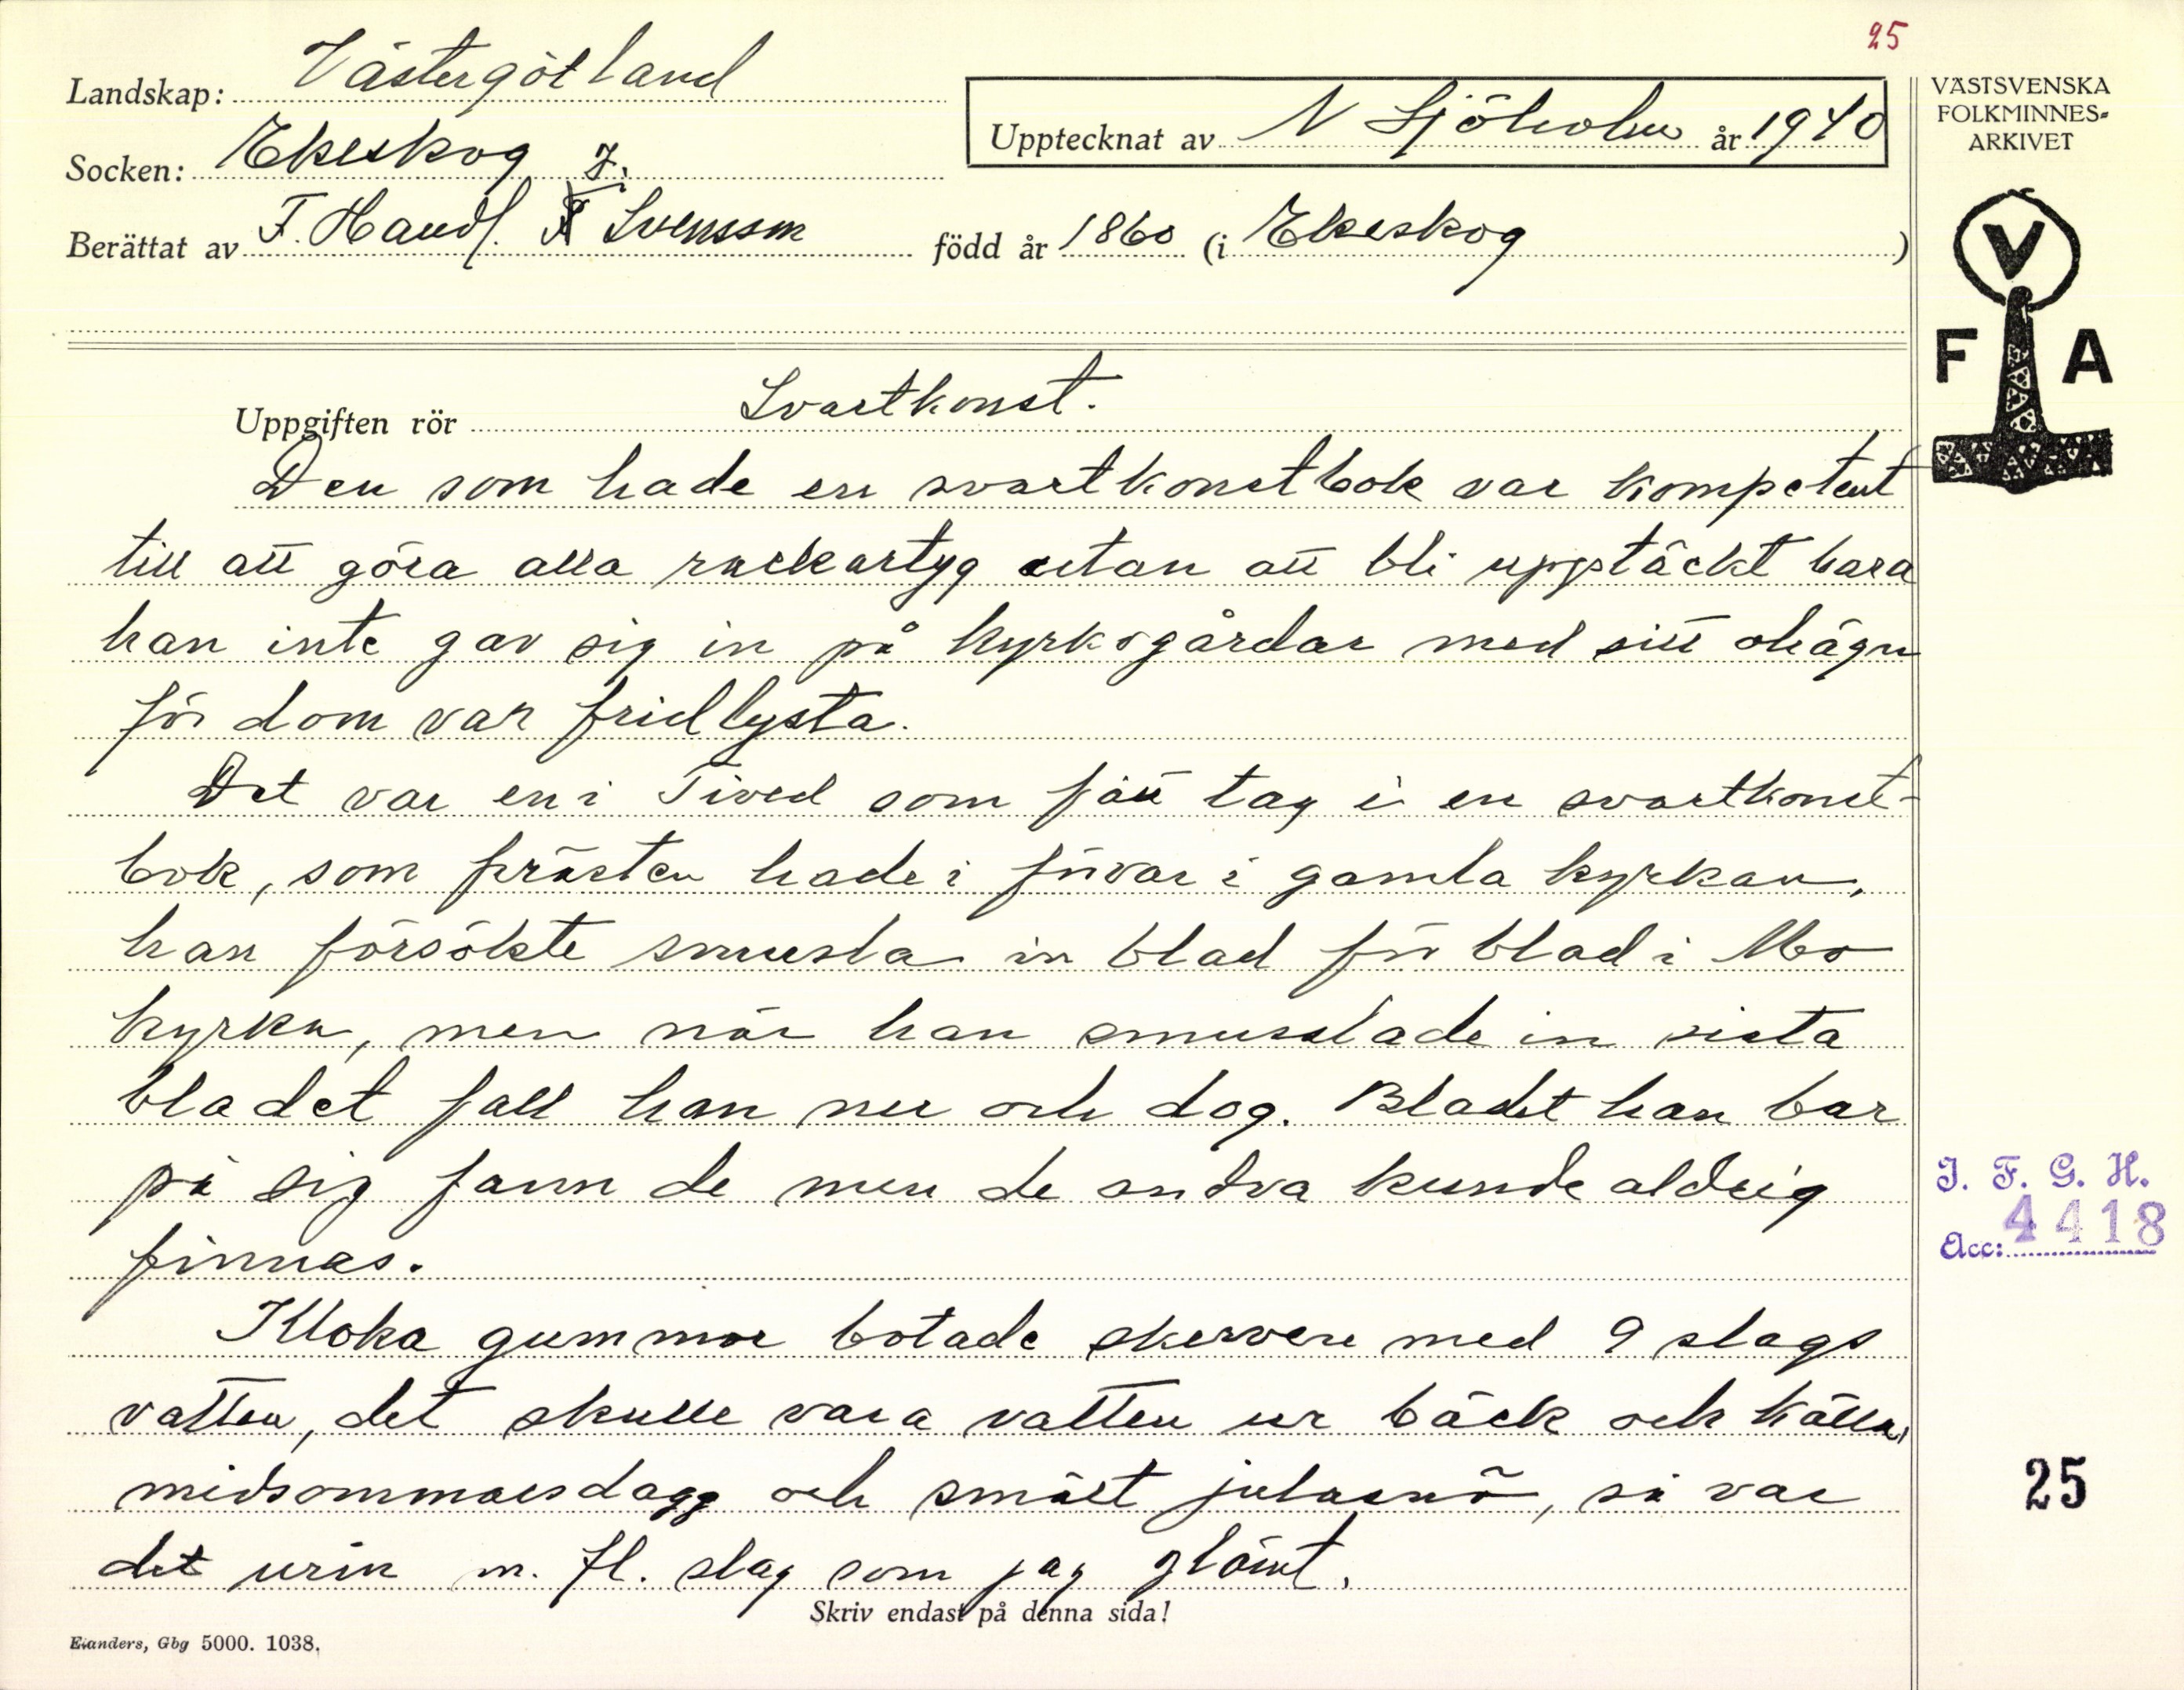 25
Landskap: Västergötland
VÄSTSVENSKA
FOLKMINNES-
ARKIVET
Upptecknat av N Sjöholm år 1940
Socken: Ekeskog
Berättat av F. Handl. J. Svensson född år 1860 (i Ekeskog)
V
F A
Uppgiften rör Svartkonst.
Den som hade en svartkonstbok var kompetent
till att göra alla rackartyg utan att bli uppstäckt bara
han inte gav sig in på kyrkogårdar med sitt ohägn
för dom var fridlysta.
Det var en i Tived som fått tag i en svartkonst-
bok, som prästen hade i förvar i gamla kyrkan,
han försökte smussla in blad för blad i Mo
kyrka, men när han smusslade in sista
bladet fall han ner och dog. Bladet han bar
på sig fann de men de andra kunde aldrig
finnas.
Kloka gummor botade skerven med 9 slags
vatten, det skulle vara vatten ur bäck och källa,
midsommarsdagg och smält julasnö, så var
det urin m. fl. slag som jag glömt.
Skriv endast på denna sida!
Elanders, Gbg 5000. 1038.
I. F. G. H.
Acc: 4418
25